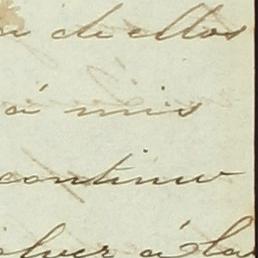 a de ellos
á mis
continuo
olver á la